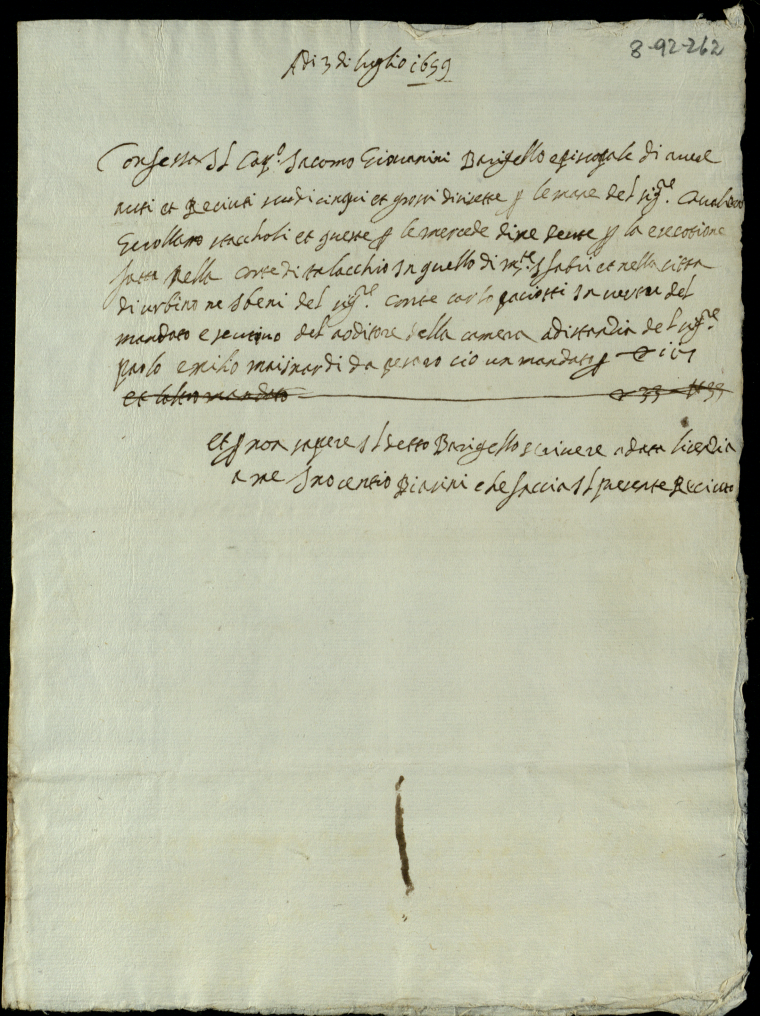 8-92-262
Adi 3 di luglio 1659
Confessa Il Cap.º Jacomo Giovannini Barigello episcopale di avere
auti et Reciuti scudi cinqui et grossi diciette p le mane del sig.re Cavaliero
Girollamo staccholi et queste p le mercede di me dente p la esecotione
fatta nella Corte di talacchio In quello di m.te fabri et nella citta
di urbino ne I beni del sig.re Conte carlo paciotti In vertu del
mandato esecutivo del aoditore della camera adistandia del sig.re
paolo emilio mainardi da pesaro cio un mandato p
et laltro mandato 33 33
et p non sapere Il detto Barigello scrivere a data licendia
a me Inocentio Biavini che faccia Il presente Reciuto